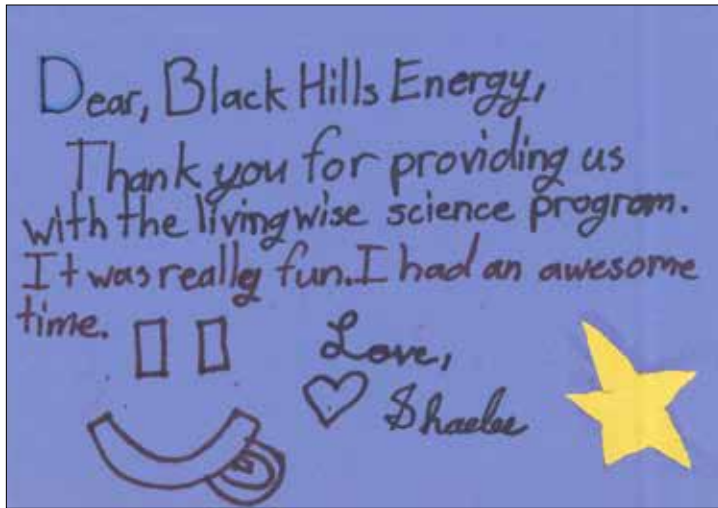 Dear, Black Hills Energy,
Thank you for providing us
with the livingwise science program.
It was really fun. I had an awesome
time.
Love,
Shaelee